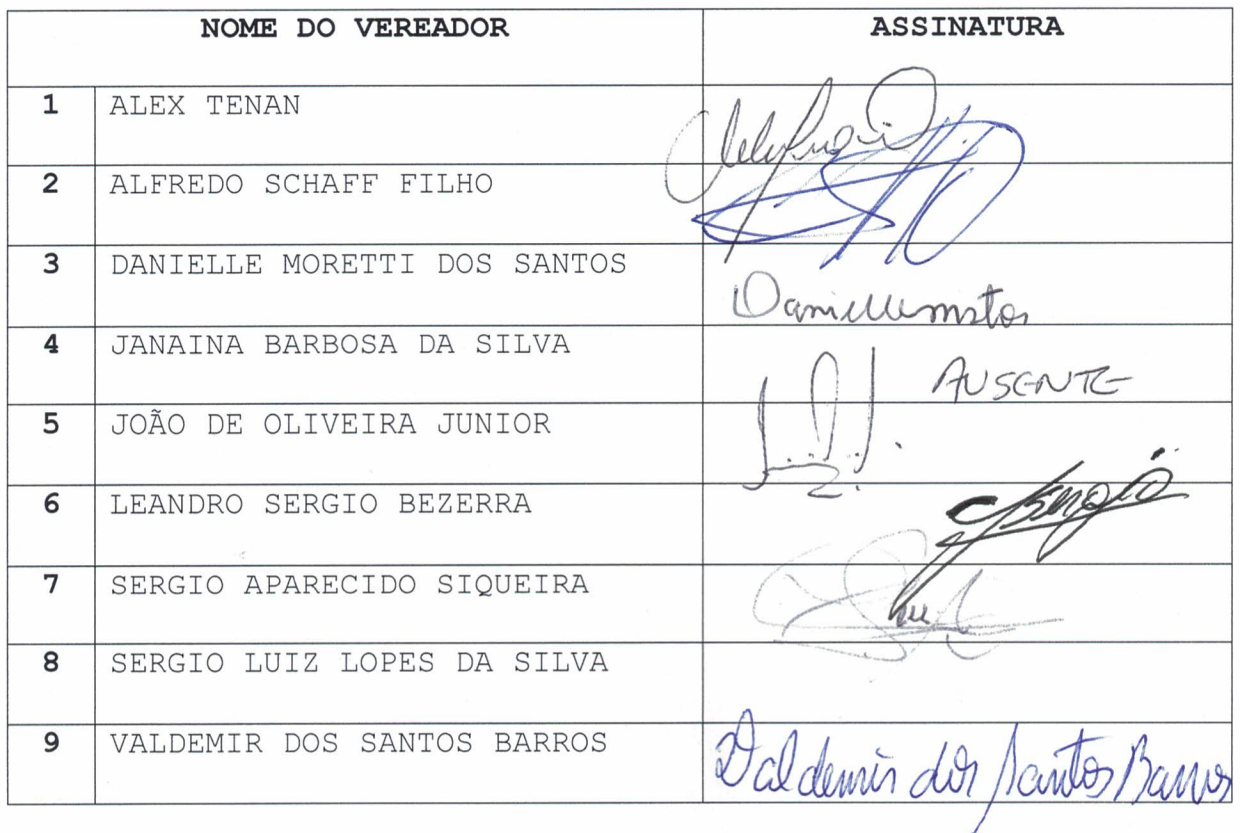 NOME DO VEREADOR ASSINATURA
1 ALEX TENAN
2 ALFREDO SCHAFF FILHO
3 DANIELLE MORETTI DOS SANTOS
4 JANAINA BARBOSA DA SILVA AUSENTE
5 JOÃO DE OLIVEIRA JUNIOR
6 LEANDRO SERGIO BEZERRA
7 SERGIO APARECIDO SIQUEIRA
8 SERGIO LUIZ LOPES DA SILVA
9 VALDEMIR DOS SANTOS BARROS Valdemir dos Santos Barros